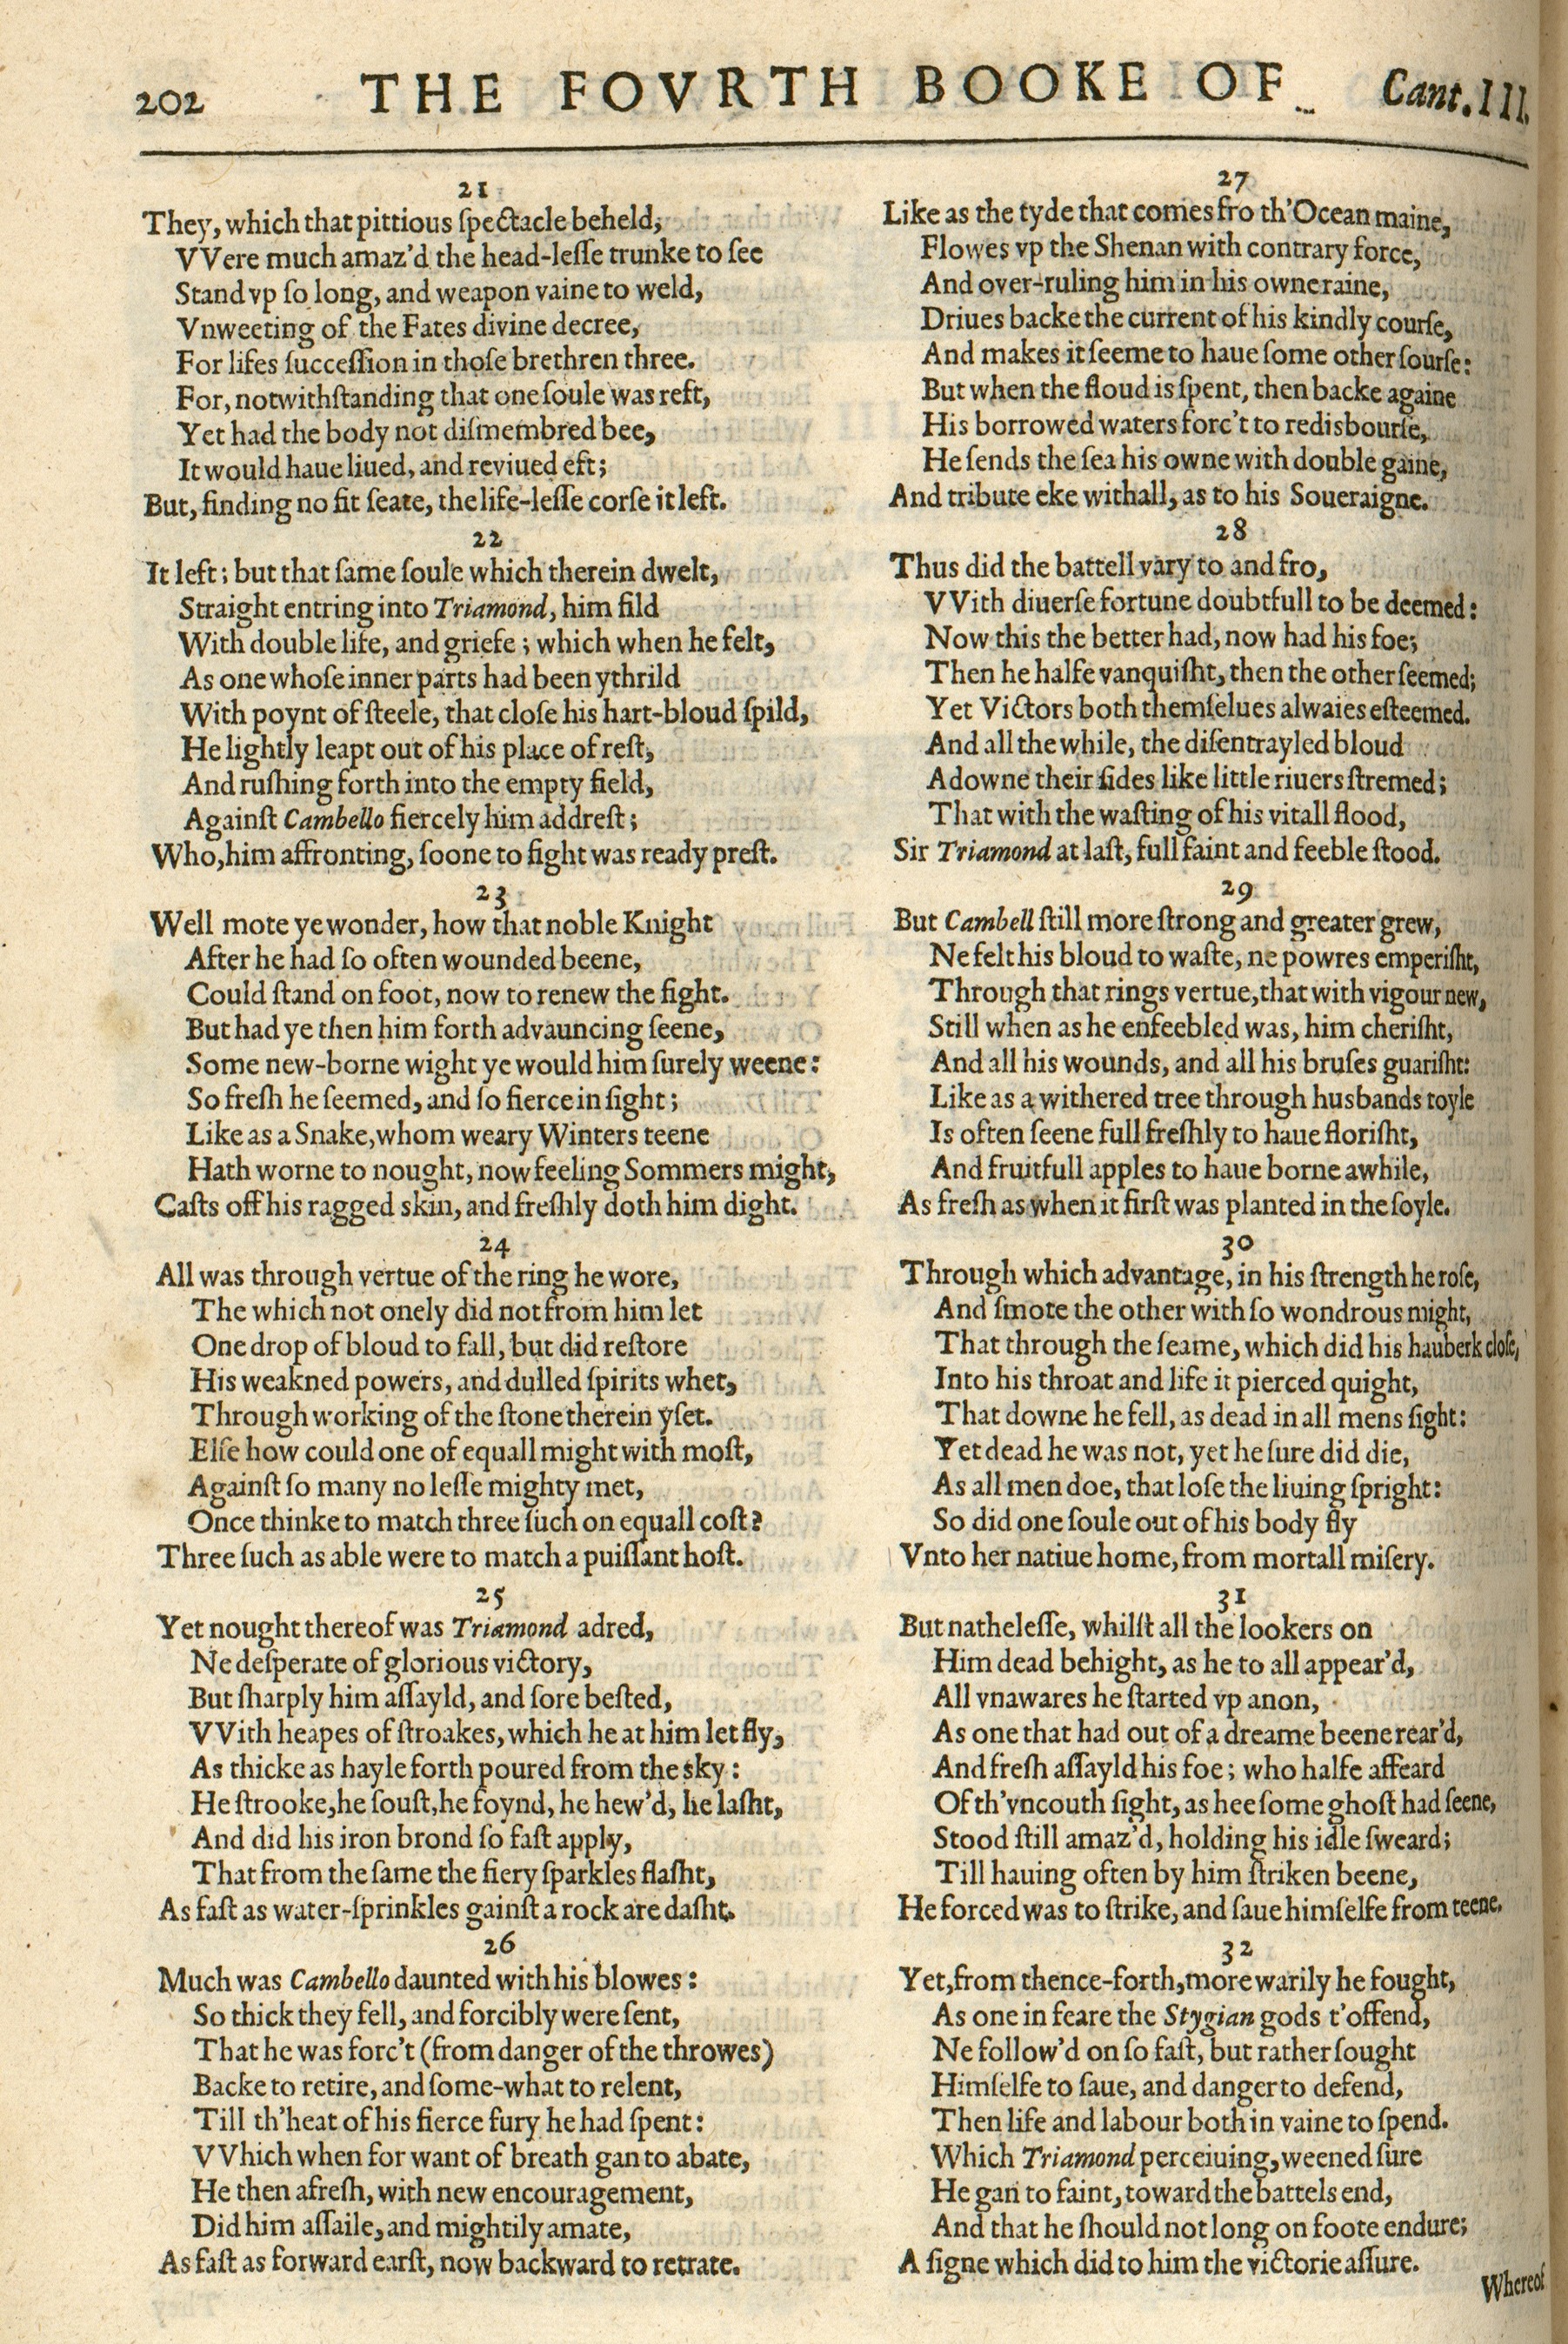 202 THE FOVRTH BOOKE OF Cant. III.
21
They, which that pittious ſpectacle beheld,
VVere much amaz'd the head-leſſe trunke to ſee
Stand vp ſo long, and weapon vaine to weld,
Vnweeting of the Fates divine decree,
For lifes ſucceſſion in thoſe brethren three.
For, notwithſtanding that one ſoule was reft,
Yet had the body not diſmembred bee,
It would haue liued, and reviued eft;
But, finding no fit ſeate, the life-leſſe corſe it left.
22
It left; but that ſame ſoule which therein dwelt,
Straight entring into Triamond, him fild
With double life, and griefe; which when he felt,
As one whoſe inner parts had been ythrild
With poynt of ſteele, that cloſe his hart-bloud ſpild,
He lightly leapt out of his place of reſt,
And ruſhing forth into the empty field,
Againſt Cambello fiercely him addreſt;
Who, him affronting, ſoone to fight was ready preſt.
23
Well mote ye wonder, how that noble Knight
After he had ſo often wounded beene,
Could ſtand on foot, now to renew the fight.
But had ye then him forth advauncing ſeene,
Some new-borne wight ye would him ſurely weene:
So freſh he ſeemed, and ſo fierce in ſight;
Like as a Snake, whom weary Winters teene
Hath worne to nought, now feeling Sommers might,
Caſts off his ragged skin, and freſhly doth him dight.
24
All was through vertue of the ring he wore,
The which not onely did not from him let
One drop of bloud to fall, but did reſtore
His weakned powers, and dulled ſpirits whet,
Through working of the ſtone therein yſet.
Elſe how could one of equall might with moſt,
Againſt ſo many no leſſe mighty met,
Once thinke to match three ſuch on equall coſt?
Three ſuch as able were to match a puiſſant hoſt.
25
Yet nought thereof was Triamond adred,
Ne deſperate of glorious victory,
But ſharply him aſſayld, and ſore beſted,
VVith heapes of ſtroakes, which he at him let fly,
As thicke as hayle forth poured from the sky:
He ſtrooke, he ſouſt, he foynd, he hew'd, he laſht,
And did his iron brond ſo faſt apply,
That from the ſame the fiery ſparkles flaſht,
As faſt as water-ſprinkles gainſt a rock are daſht.
26
Much was Cambello daunted with his blowes:
So thick they fell, and forcibly were ſent,
That he was forc't (from danger of the throwes)
Backe to retire, and ſome-what to relent,
Till th'heat of his fierce fury he had ſpent:
VVhich when for want of breath gan to abate,
He then afreſh, with new encouragement,
Did him aſſaile, and mightily amate,
As faſt as forward earſt, now backward to retrate.
27
Like as the tyde that comes fro th'Ocean maine,
Flowes vp the Shenan with contrary force,
And over-ruling him in his owne raine,
Driues backe the current of his kindly courſe,
And makes it ſeeme to haue ſome other ſourſe:
But when the floud is ſpent, then backe againe
His borrowed waters forc't to redisbourſe,
He ſends the ſea his owne with double gaine,
And tribute eke withall, as to his Soueraigne.
28
Thus did the battell vary to and fro,
VVith diuerſe fortune doubtfull to be deemed:
Now this the better had, now had his foe;
Then he halfe vanquiſht, then the other ſeemed;
Yet Victors both themſelues alwaies eſteemed.
And all the while, the diſentrayled bloud
Adowne their ſides like little riuers ſtremed;
That with the waſting of his vitall flood,
Sir Triamond at laſt, full faint and feeble ſtood.
29
But Cambell ſtill more ſtrong and greater grew,
Ne felt his bloud to waſte, ne powres emperiſht,
Through that rings vertue, that with vigour new,
Still when as he enfeebled was, him cheriſht,
And all his wounds, and all his bruſes guariſht:
Like as a withered tree through husbands toyle
Is often ſeene full freſhly to haue floriſht,
And fruitfull apples to haue borne awhile,
As freſh as when it firſt was planted in the ſoyle.
30
Through which advantage, in his ſtrength he roſe,
And ſmote the other with ſo wondrous might,
That through the ſeame, which did his hauberk cloſe,
Into his throat and life it pierced quight,
That downe he fell, as dead in all mens ſight:
Yet dead he was not, yet he ſure did die,
As all men doe, that loſe the liuing ſpright:
So did one ſoule out of his body fly
Vnto her natiue home, from mortall miſery.
31
But natheleſſe, whilſt all the lookers on
Him dead behight, as he to all appear'd,
All vnawares he ſtarted vp anon,
As one that had out of a dreame beene rear'd,
And freſh aſſayld his foe; who halfe affeard
Of th'vncouth ſight, as hee ſome ghoſt had ſeene,
Stood ſtill amaz'd, holding his idle ſweard;
Till hauing often by him ſtriken beene,
He forced was to ſtrike, and ſaue himſelfe from teene.
32
Yet, from thence-forth, more warily he fought,
As one in feare the Stygian gods t'offend,
Ne follow'd on ſo faſt, but rather ſought
Himſelfe to ſaue, and danger to defend,
Then life and labour both in vaine to ſpend.
Which Triamond perceiuing, weened ſure
He gan to faint, toward the battels end,
And that he ſhould not long on foote endure;
A ſigne which did to him the victorie aſſure.
Whereof